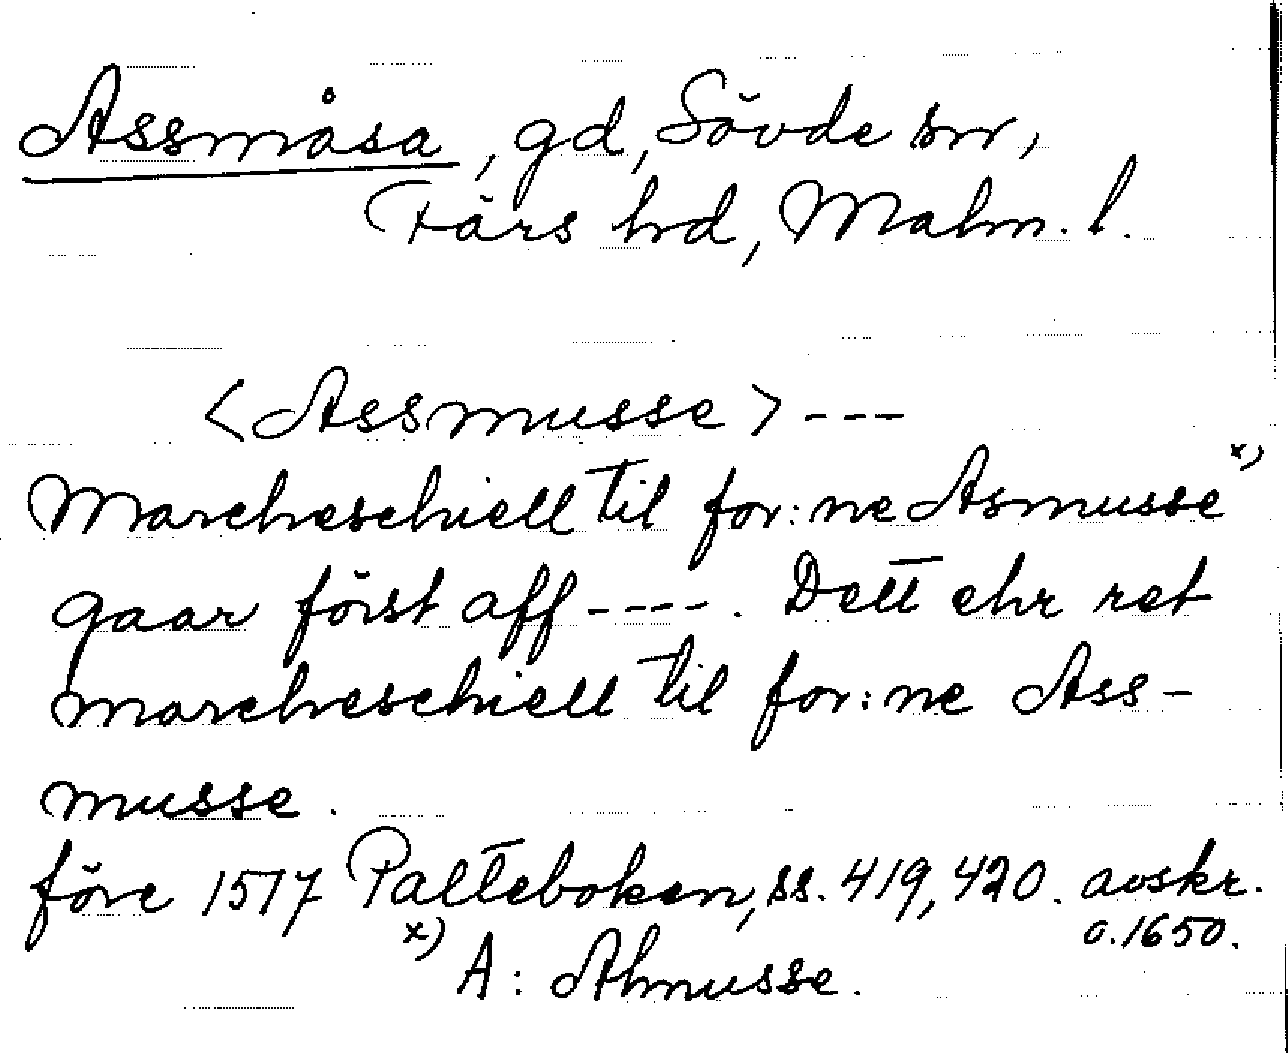 Assmåsa, gd, Sövde sn,
Färs hd, Malm. l.
<Assmusse> ---
Marcheschiell til for:ne Asmusse x)
gaar först aff ----. Dett ehr ret
marcheschiell til for:ne Ass-
musse.
före 1517 Palteboken, ss. 419, 420. avskr.
o. 1650.
x) A: Ahmusse.